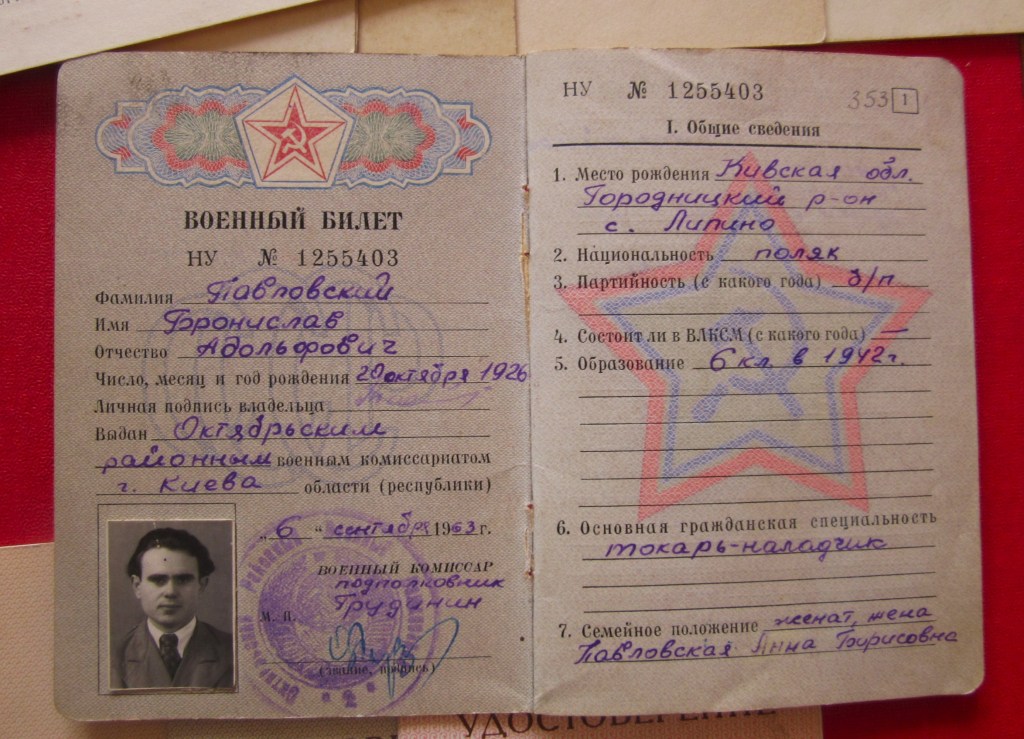 ВОЕННЫЙ БИЛЕТ
НУ № 1255403
Фамилия Павловский
Имя Бронислав
Отчество Адольфович
Число, месяц и год рождения 20 октября 1926
Личная подпись владельца
Выдан Октябрьским
районным военным комиссариатом
г. Киева области (республики)
„6 “ сентября 1963 г.
ВОЕННЫЙ КОМИССАР
подполковник
М. П. Грудинин
(звание, подпись)
НУ № 1255403
353 1
I. Общие сведения
1. Место рождения Кивская обл.
Городницкий р-он
с. Липино
2. Национальность поляк
3. Партийность (с какого года) б/п
4. Состоит ли в ВЛКСМ (с какого года) —
5. Образование 6 кл. в 1942 г.
6. Основная гражданская специальность
токарь-наладчик
7. Семейное положение женат, жена
Павловская Анна Борисовна
УДОСТОВЕРЕНИЕ